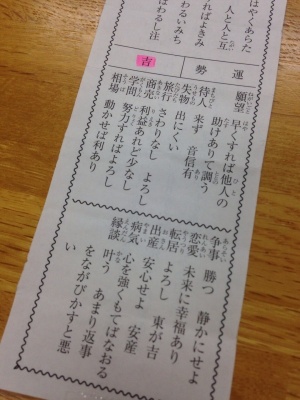 はやくあらた
人と人と互
ればよきみ
わるいみち
ばわるし注
運勢 吉
願望 早くすれば他人の
助けありて調う
待人 来ず 音信有
失物 出にくい
旅行 さわりなし よろし
商売 利益あれど少なし
学問 努力すればよろし
相場 動かせば利あり
争事 勝つ 静かにせよ
恋愛 未来に幸福あり
転居 よろし 東が吉
出産 安心せよ 安産
病気 心を強くもてばなおる
縁談 叶う あまり返事
をながびかすと悪
い